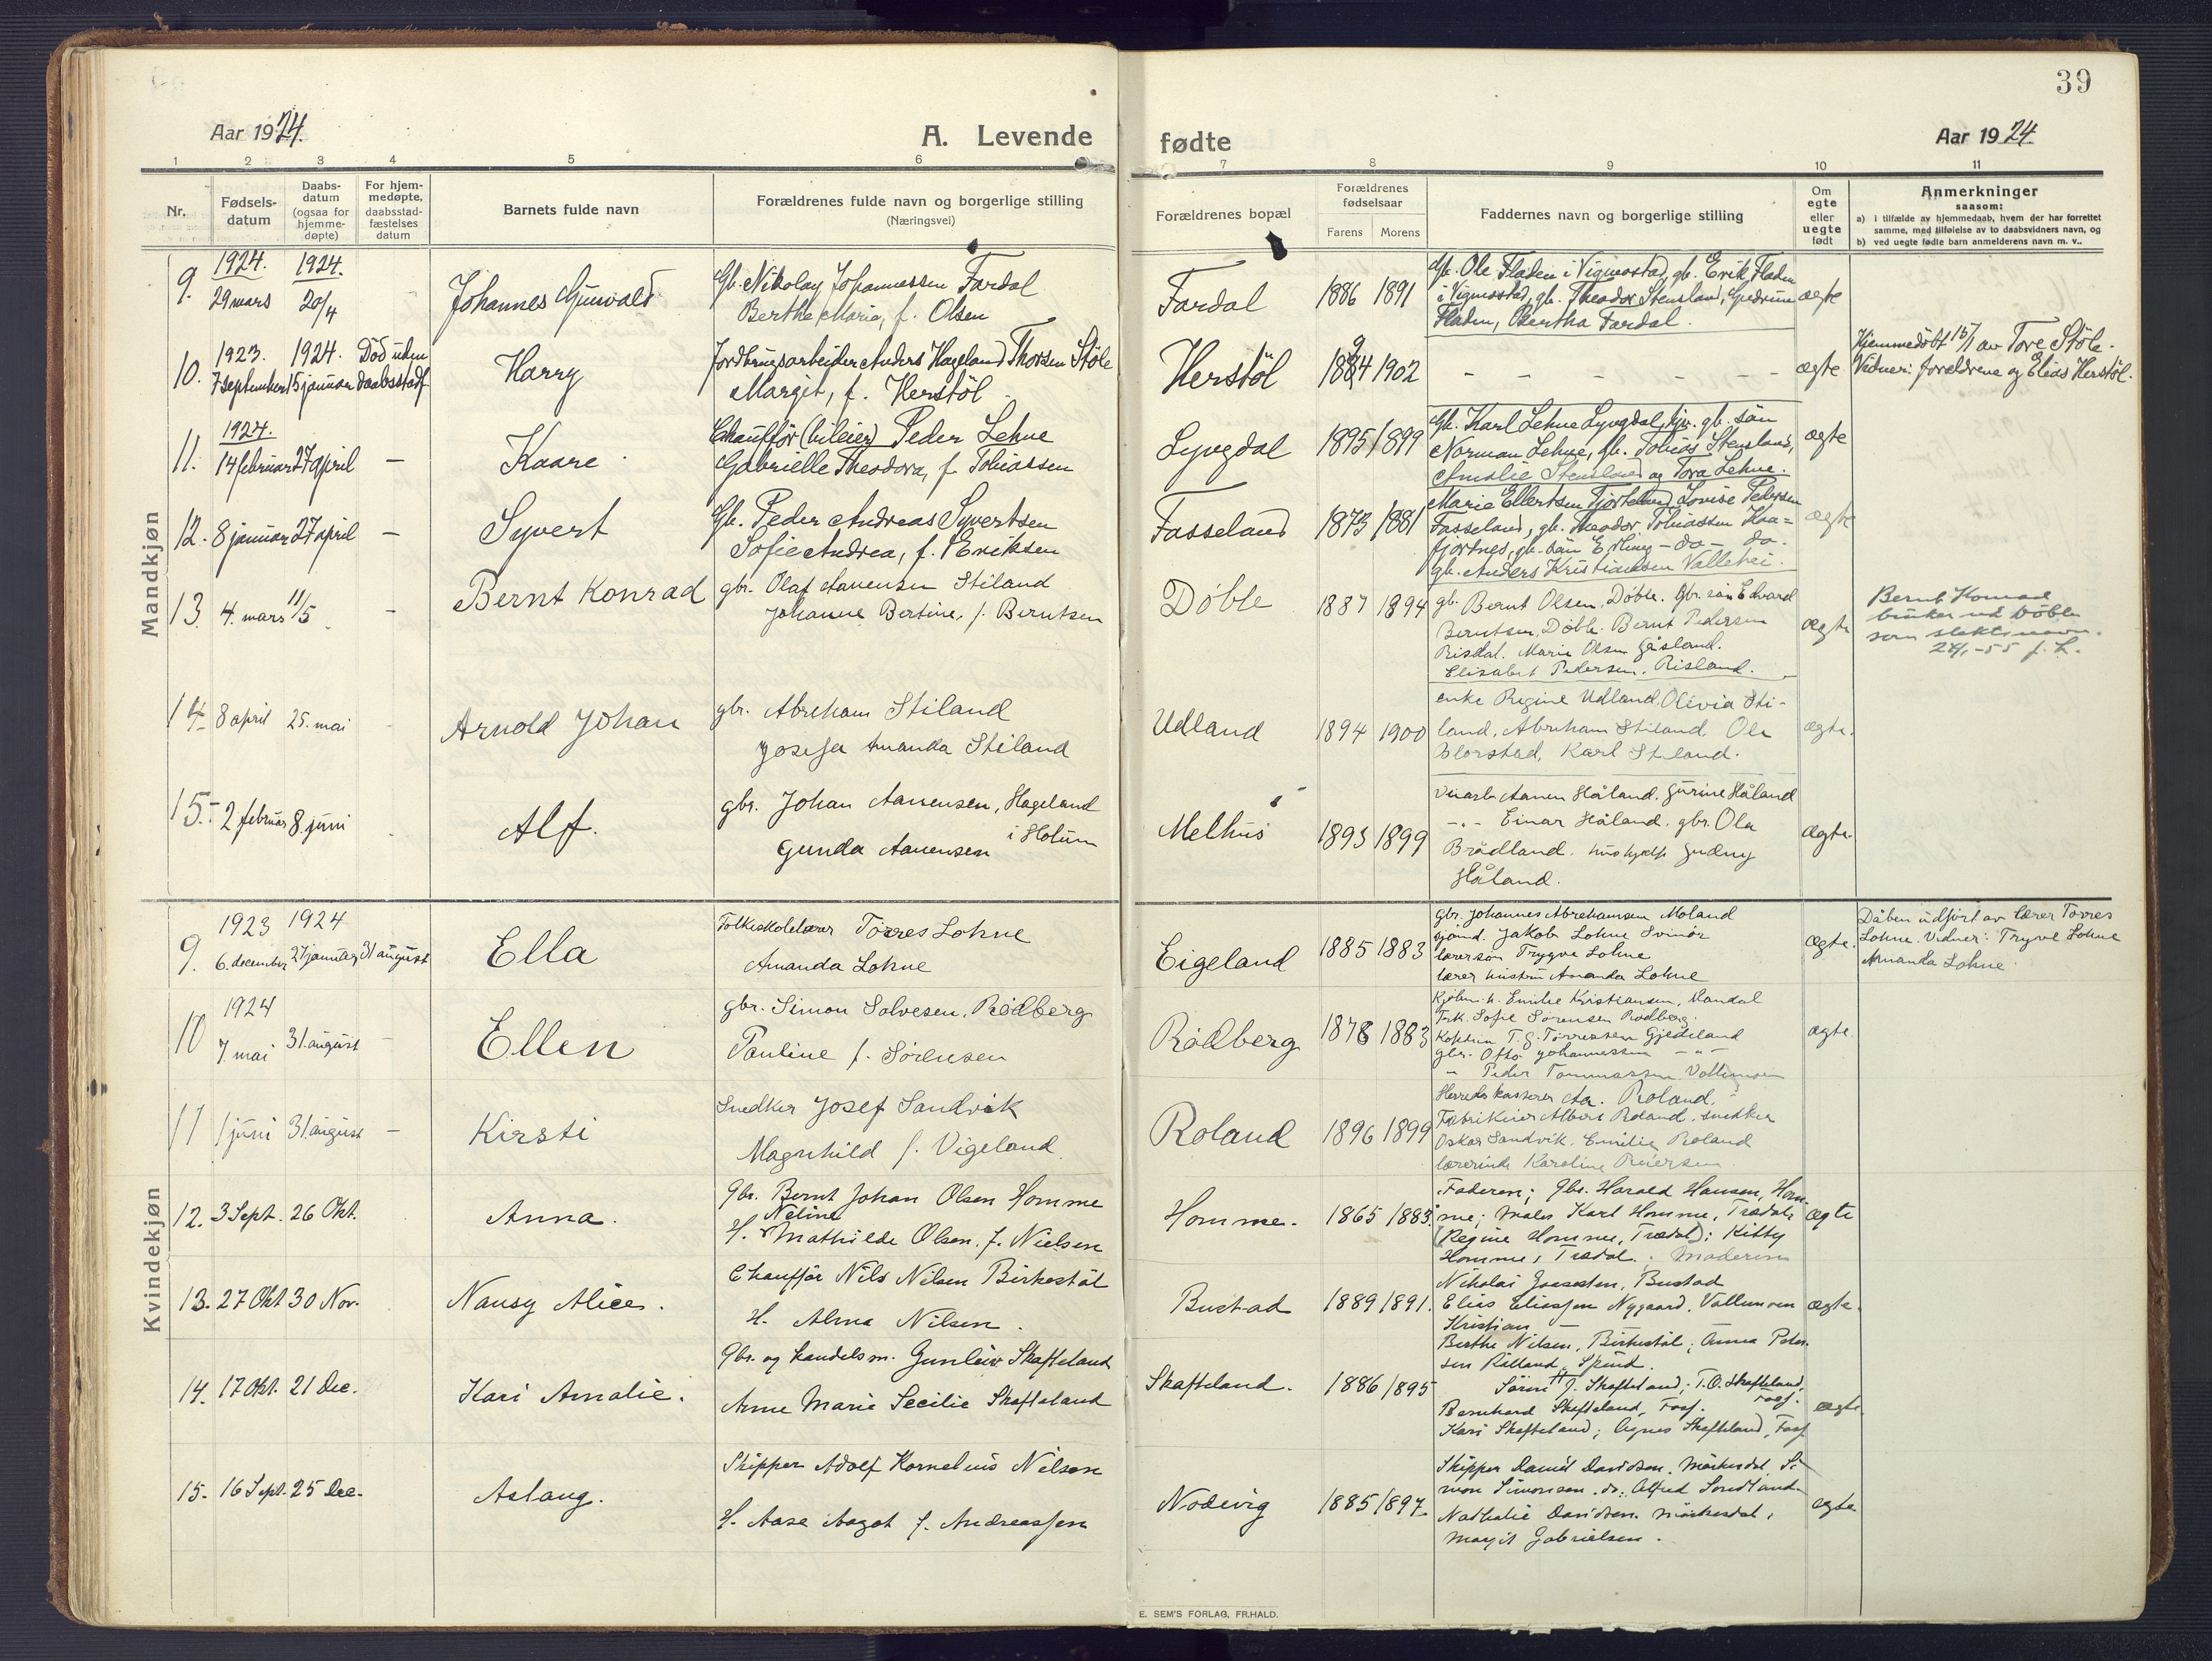 39
Aar 1924.
A. Levende
fødte
Aar 1924.
1 2 3 4 5 6 7 8 9 10 11
Nr.
Fødsels-
datum
Daabs-
datum
(ogsaa for
hjemme-
døpte)
For hjem-
medøpte,
daabsstad-
fæstelses
datum
Barnets fulde navn
Forældrenes fulde navn og borgerlige stilling
(Næringsvei)
Forældrenes bopæl
Forældrenes
fødselsaar
Farens Morens
Faddernes navn og borgerlige stilling
Om
egte
eller
uegte
født
Anmerkninger
saasom:
a) i tilfælde av hjemmedaab, hvem der har forrettet
samme, med tilføielse av to daabsvidners navn, og
b) ved uegte fødte barn anmelderens navn m. v..
Mandkjøn
9. 1924. 29 mars 1924. 20/4 Johannes Gunvald
Gb. Nikolay Johannessen Fardal
Berthe Marie, f. Olsen
Fardal 1886 1891
Gb. Ole Fladen i Vigmostad, gb. Erik Fladen
i Vigmostad, gb. Theodor Stensland, Gudrun
Fladen, Bertha Fardal.
ægte
10. 1923. 7 september 1924. 15 januar Död uden daabsstadf. Harry
Jordbrugsarbeider Anders Hageland Thorsen Stöle
Margit, f. Herstöl
Herstöl 1894 1902
- - - - - -
ægte
Hjemmedöbt 15/1 av Tore Stöle.
Vidner: forældrene og Elias Herstöl.
11. 1924. 14 februar 27 april - Kaare
Chauffør (bileier) Peder Lehne
Gabrielle Theodora, f. Tobiassen
Lyngdal 1895 1899
Gb. Karl Lehne Lyngdal, gb. sön
Norman Lehne, gb. Tobias Stensland,
Amalie Stensland og Tora Lehne.
ægte
12. 8 januar 27 april - Syvert
Gb. Peder Andreas Syvertsen
Sofie Andrea, f. Eriksen
Fasseland 1873 1881
Marie Ellertsen Fjorteland, Lovise Pedersen
Fasseland, gb. Theodor Tobiassen Kaa=
fjortnes, gb. sön Erling - do - do.
gb. Anders Kristiansen Vallehei.
ægte
13. 4. mars 11/5 - Bernt Konrad
gbr. Olaf Aanensen Stiland
Johanne Bertine, f. Berntsen
Döble 1887 1894
gb. Bernt Olsen, Döble. Gbr. sön Edvard
Berntsen, Döble. Bernt Pedersen
Risdal. Marie Olsen Gåsland.
Elisabet Pedersen, Risland.
ægte
Bernt Konrad
bruker nå Döble
som slektsnavn.
14. 8 april 25. mai Arnold Johan
gbr. Abreham Stiland
Josefa Amanda Stiland
Udland 1894 1900
enke Regine Udland, Olivia Sti-
land, Abraham Stiland, Ole
Blorstad, Karl Stiland.
ægte.
15. 2 februar 8. juni Alf.
gbr. Johan Aanensen, Hageland
i Holum
Gunda Aanensen
Melhus 1893 1899
Aanen Håland. Gurine Håland
-"- Einar Håland. gbr. Ola
Brådland. hushjælp Gudny
Håland.
ægte.
Kvindekjøn
9. 1923 6. december 1924 27 januar 31 august Ella
Folkeskolelærer Torres Lohne
Amanda Lohne
Eigeland 1885 1883
gbr. Johannes Abrehamsen Moland
sjömd. Jakob Lohne Svinör
lærersön Trygve Lohne
lærer hustru Amanda Lohne
ægte.
Dåben udfört av lærer Torres
Lohne. Vidner: Trygve Lohne
Amanda Lohne
10 1924 7. mai 31. august - Ellen
gbr. Simon Solvesen, Rödberg
Pauline f. Sörensen
Rödberg 1878 1883
Kjöbm. h. Emilie Kristiansen, Mandal
Frk. Sofie Sörensen Rödberg.
Kaptein T. G. Torressen Gjedeland
gbr. Otto Johannessen - " -
" Peder Tommassen Vallemoen
ægte.
11 1 juni 31. august - Kirsti
Snedker Josef Sandvik
Magnhild f. Vigeland.
Roland 1896 1899
Herredskasserer Aa. Roland,
Fabrikeier Albert Roland, snedker
Oskar Sandvik. Emilie Roland
lærerinde Karoline Reiersen
12. 3 Sept. 26 Okt. Anna.
Gbr. Bernt Johan Olsen Homme
Neline
H. Mathilde Olsen, f. Nielsen
Homme. 1865 1883.
Faderen; Gbr. Harald Hansen, Hom-
me; Maler Karl Homme, Trædal;
(Regine Homme, Trædal); Kitty
Homme, Trædal. Moderen
ægte
13. 27 Okt 30 Nov. Nansy Alice.
Chauffør Nils Nilsen Birkestöl
H. Alma Nilsen.
Bustad 1889 1891.
Nikolai Gaasesten, Bustad
Elias Eliassen Nygaard, Vallemoen
Kristian -
Berthe Nilsen, Birkestöl; Anna Peder-
sen Rålland, Spind.
ægte.
14. 17 Okt. 21 Dec. Kari Amalie.
Gbr. og handelsm. Gunleiv Skofteland
Anne Marie Secilie Skofteland
Skofteland. 1886 1895
Sörine J. Skofteland; T.O. Skofteland,
Fosf.
Bernhard Skofteland, Fosf.
Kari Skofteland; Agnes Skofteland, Fosf
ægte.
15. 16 Sept. 25 Dec. Aslaug.
Skipper Adolf Kornelius Nilsen
H. Aase Aagot f. Andreassen
Nodevig 1885 1897.
Skipper Daniel Davidsen. Mörkesdal, Si-
mon Simonsen. do; Alfred Sondland
Nathalie Davidsen. Mörkesdal,
Margit Gabrielsen.
ægte
E. SEM'S FORLAG, FR.HALD.